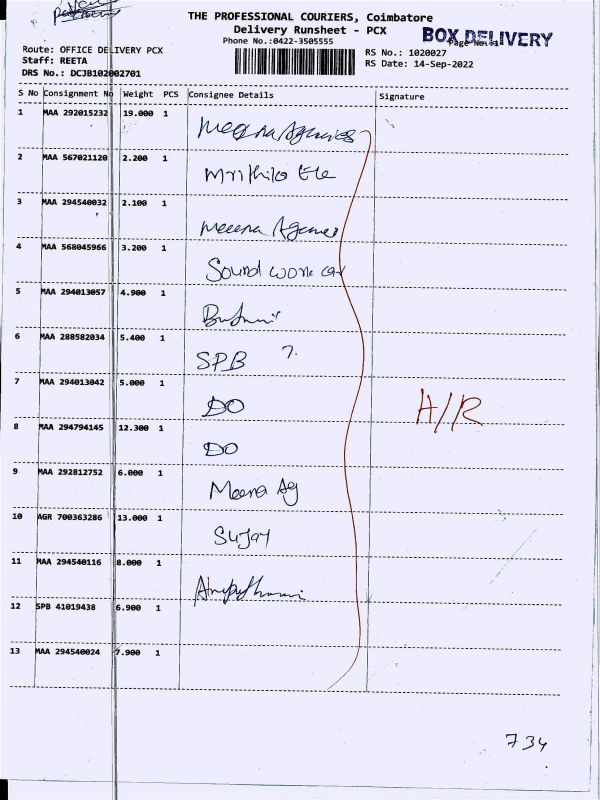 THE PROFESSIONAL COURIERS, Coimbatore
Delivery Runsheet - PCX
Phone No.:0422-3505555
BOX DELIVERY
Page No.:1
Route: OFFICE DELIVERY PCX
Staff: REETA
DRS No.: DCJB102002701
RS No.: 1020027
RS Date: 14-Sep-2022
S No Consignment No Weight PCS Consignee Details Signature
1 MAA 292015232 19.000 1 Meena Agencies
2 MAA 567021120 2.200 1 Ele
3 MAA 294540032 2.100 1 Meena Agencies
4 MAA 568045966 3.200 1 Sound work
5 MAA 294013057 4.900 1
6 MAA 288582034 5.400 1 SPB 7.
7 MAA 294013042 5.000 1 DO
H/R
8 MAA 294794145 12.300 1 DO
9 MAA 292812752 6.000 1 Meena Ag
10 AGR 700363286 13.000 1 Sujay
11 MAA 294540116 8.000 1
12 SPB 41019438 6.900 1
13 MAA 294540024 7.900 1
734